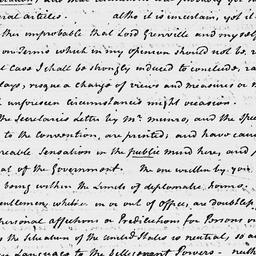 ial articles. altho it is uncertain, yet it
this improbable that Lord Grenville and myself
on Terms which in my opinion should not be r
Case I shall be strongly induced to conclude, ra
lays, risque a charge of views and measures or
unforeseen circumstances might occasion.
he Secretaries Letter by Mr. Munro, and the Spee
to the convention, are printed; and have caus
reable Sensation in the public mind here, and
at of the Government. The one written by you
being within the Limits of diplomatic forms.
Gentlemen, whether in or out of Office, are doubtless
personal affections or Predilections for Persons or
the Situation of the United States is neutral, so a
Language to the belligerent Powers - neith